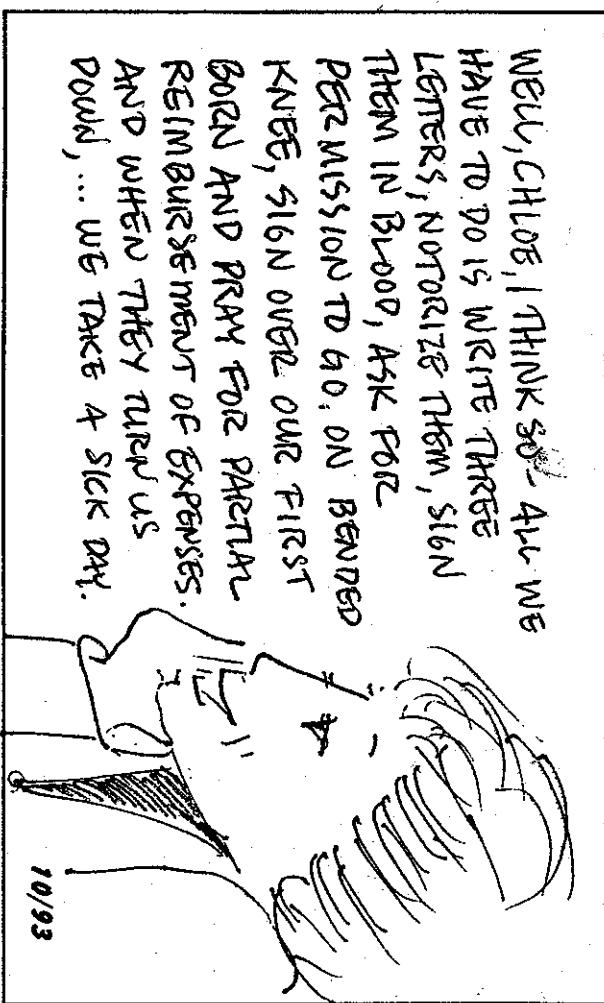 WELL, CHLOE, I THINK SO - ALL WE
HAVE TO DO IS WRITE THREE
LETTERS, NOTORIZE THEM, SIGN
THEM IN BLOOD, ASK FOR
PERMISSION TO GO, ON BENDED
KNEE, SIGN OVER OUR FIRST
BORN AND PRAY FOR PARTIAL
REIMBURSEMENT OF EXPENSES.
AND WHEN THEY TURN US
DOWN,... WE TAKE A SICK DAY.
10/93